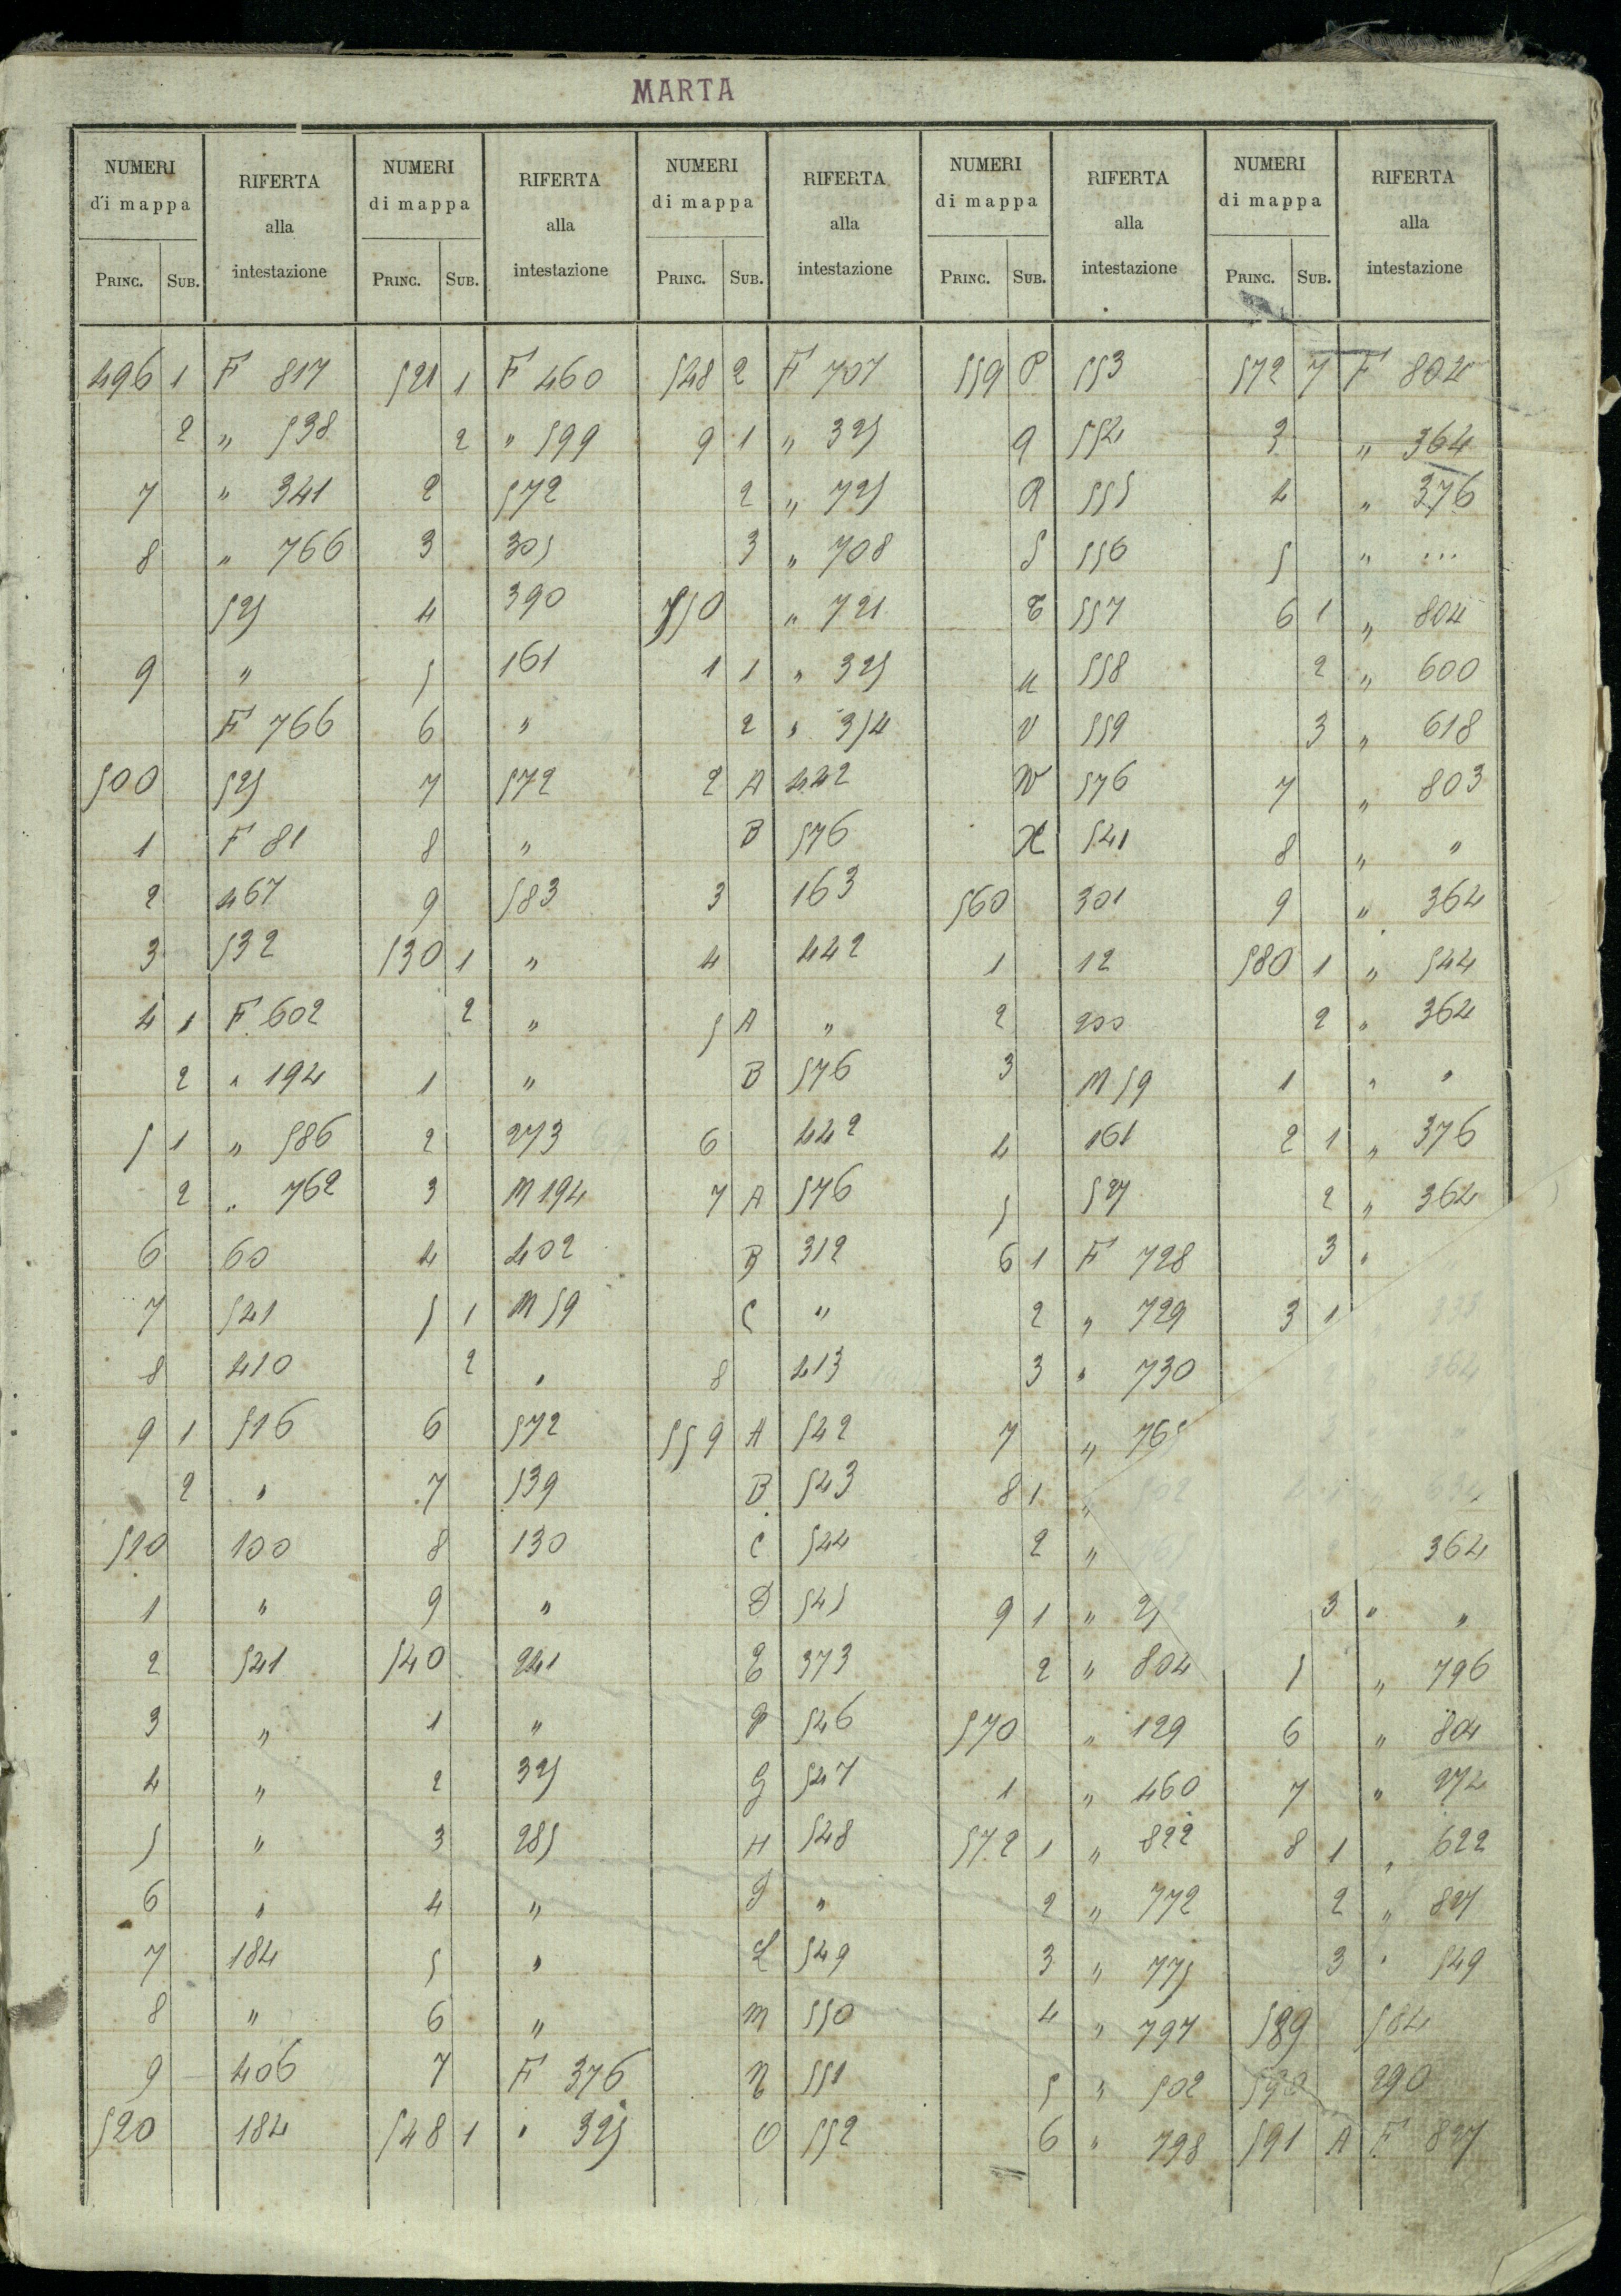 MARTA
NUMERI di mappa RIFERTA alla intestazione NUMERI di mappa RIFERTA alla intestazione NUMERI di mappa RIFERTA alla intestazione NUMERI di mappa RIFERTA alla intestazione NUMERI di mappa RIFERTA alla intestazione
PRINC. SUB. PRINC. SUB. PRINC. SUB. PRINC. SUB. PRINC. SUB.
496 1 F 817 521 1 F 460 548 2 F 707 559 P 553 572 7 F 802
2 " 538 2 " 599 9 1 " 325 Q 554 3 " 364
7 " 341 2 572 2 " 725 R 555 4 " 376
8 " 766 3 305 3 " 708 S 556 5 " ...
525 4 390 550 " 721 T 557 6 1 " 804
9 " 5 161 1 1 " 325 U 558 2 " 600
F 766 6 " 2 " 354 V 559 3 " 618
500 525 7 572 2 A 442 W 576 7 " 803
1 F 81 8 " B 576 X 541 8 " "
2 467 9 583 3 163 560 301 9 " 364
3 532 530 1 " 4 442 1 12 580 1 " 544
4 1 F 602 2 " 5 A " 2 200 2 " 364
2 " 194 1 " B 576 3 M 59 1 " "
5 1 " 586 2 273 6 442 4 161 2 1 " 376
2 " 762 3 M 194 7 A 576 5 527 2 " 364
6 60 4 402 B 312 6 1 F 728 3 "
7 541 5 1 M 59 C " 2 " 729 3 1
8 410 2 " 8 413 3 " 730
9 1 516 6 572 559 A 542 7 " 765
2 " 7 539 B 543 8 1 "
510 100 8 130 C 544 2 " 364
1 " 9 " D 545 9 1 " 3 " "
2 541 540 241 E 373 2 " 804 5 " 796
3 " 1 " F 546 570 " 129 6 " 804
4 " 2 325 G 547 1 " 460 7 " 274
5 " 3 285 H 548 572 1 " 822 8 1 " 622
6 " 4 " I " 2 " 772 2 " 827
7 184 5 " L 549 3 " 775 3 " 549
8 " 6 " M 550 4 " 797 589 584
9 406 7 F 376 N 551 5 " 502 590 290
520 184 548 1 " 325 O 552 6 " 798 591 A F 827